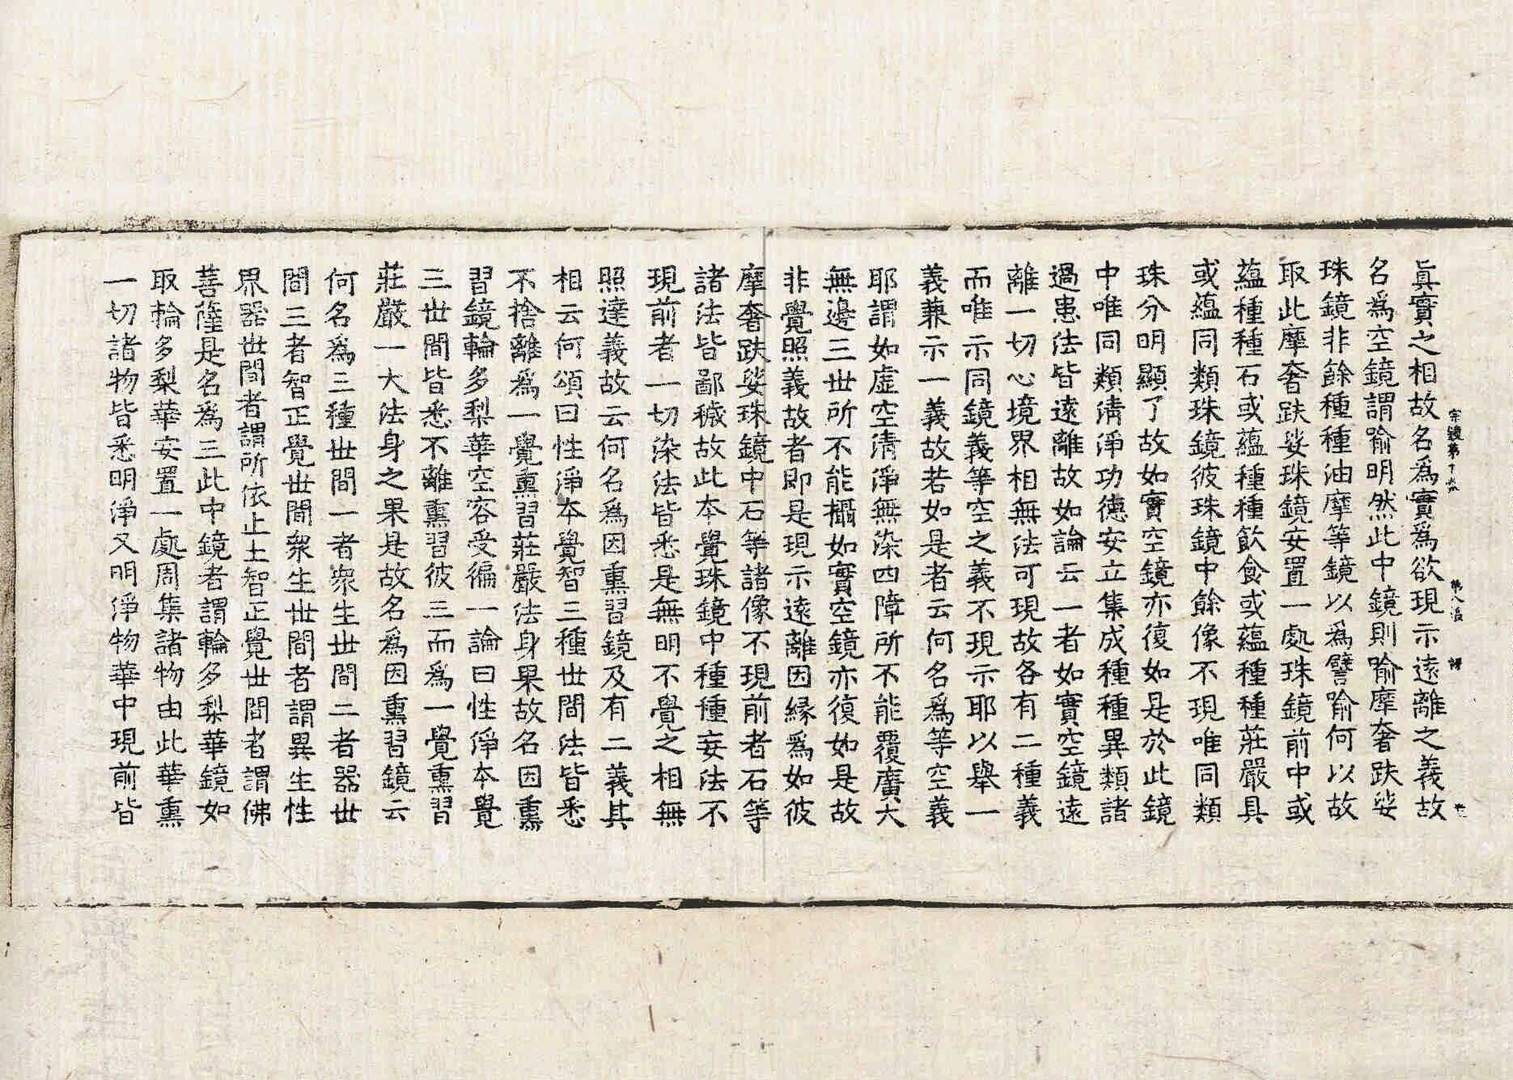 眞實之相故名為實為欲現示遠離之義故
名爲空鏡謂喻明然此中鏡則喻摩奢趺娑
珠鏡非餘種種油摩等鏡以爲譬喻何以故
取此摩奢趺娑珠鏡安置一處珠鏡前中或
蘊種種石或蘊種種飲食或蘊種種莊嚴具
或蘊同類珠鏡彼珠鏡中餘像不現唯同類
珠分明顯了故如實空鏡亦復如是於此鏡
中唯同類清淨功德安立集成種種異類諸
過患法皆遠離故如論云一者如實空鏡遠
離一切心境界相無法可現故各有二種義
而唯示同鏡義等空之義不現示耶以舉一
義兼示一義故若如是者云何名爲等空義
耶謂如虛空清淨無染四障所不能覆廣大
無邊三世所不能攝如實空鏡亦復如是故
非覺照義故者即是現示遠離因緣爲如彼
摩奢趺娑珠鏡中石等諸像不現前者石等
諸法皆鄙穢故此本覺珠鏡中種種妄法不
現前者一切染法皆悉是無明不覺之相無
照達義故云何名為因熏習鏡及有二義其
相云何頌曰性淨本覺智三種世間法皆悉
不捨離爲一覺熏習莊嚴法身果故名因熏
習鏡輪多梨華空容受徧一論曰性淨本覺
三世間皆悉不離熏習彼三而爲一覺熏習
莊嚴一大法身之果是故名為因熏習鏡云
何名爲三種世間一者衆生世間二者器世
間三者智正覺世間衆生世間者謂異生性
界器世間者謂所依止土智正覺世間者謂佛
菩薩是名為三此中鏡者謂輪多梨華鏡如
取輪多梨華安置一處周集諸物由此華熏
一切諸物皆悉明淨又明淨物華中現前皆